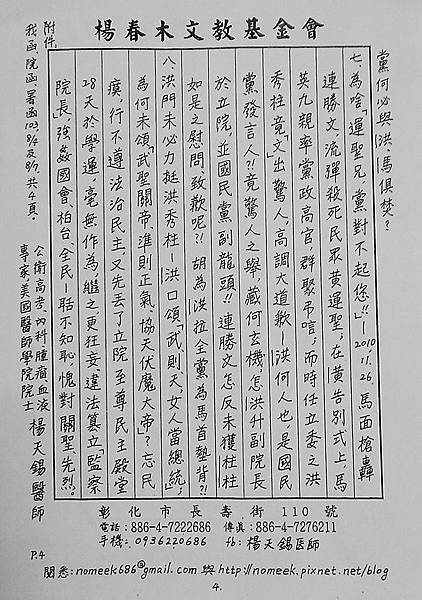 楊春木文教基金會
黨何必與洪、馬俱焚？
七、為啥「運聖兄黨對不起您!!」—2010.11.26.馬面槍轟
連勝文流彈殺死民眾黃運聖；在黃告別式上，馬
英九親率黨政高官，群聚弔唁；而時任立委之洪
秀柱竟「文」出驚人，高調大道歉—洪何人也，是國民
黨發言人?!竟驚人之舉，藏何玄機，怎洪升副院長
於立院，並國民黨副龍頭!!連勝文怎反未獲柱柱
如是之慰問致歉呢?!胡為洪拉全黨為馬首墊背?!
八、洪門未必力挺洪秀柱—洪口頌「武則天女人當總統」；
為何未頌「武聖關帝，準則正氣，協天伏魔大帝」？忘民
瘼，行不遵法治民主又先丟了立院至尊民主殿堂
28天於學運，毫無作為繼之，更狂妄、違法篡立「監察
院長」，強姦國會、柏台、全民—聒不知恥，愧對關聖、先烈。
附件
我函、院函、署函103.8/4及8/7.共4頁。
公衛高考、內科腫瘤血液
專家、美國醫師學院院士 楊天錫醫師
彰化市長壽街110號
電話：886-4-7222686 傳真：886-4-7276211
手機：0936220686 fb：楊天錫医師
P.4
閱悉：nomeek686@gmail.com與http://nomeek.pixnet.net/blog
4.